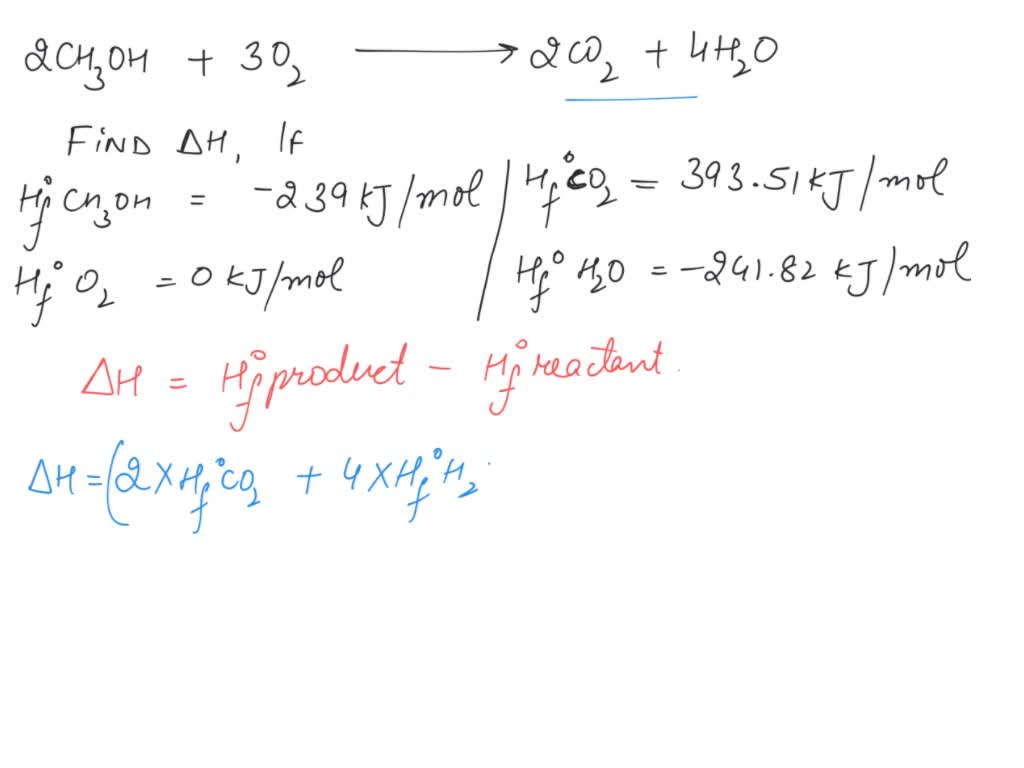 2CH₃OH + 3O₂ ⟶ 2CO₂ + 4H₂O
FIND ΔH, If
Hf° Cn₃on = -239 kJ/mol / Hf° CO₂ = 393.51 kJ/mol
Hf° O₂ = 0 kJ/mol / Hf° H₂O = -241.82 kJ/mol
ΔH = Hf° product - Hf° reactant.
ΔH = (2 X Hf° CO₂ + 4 X Hf° H₂